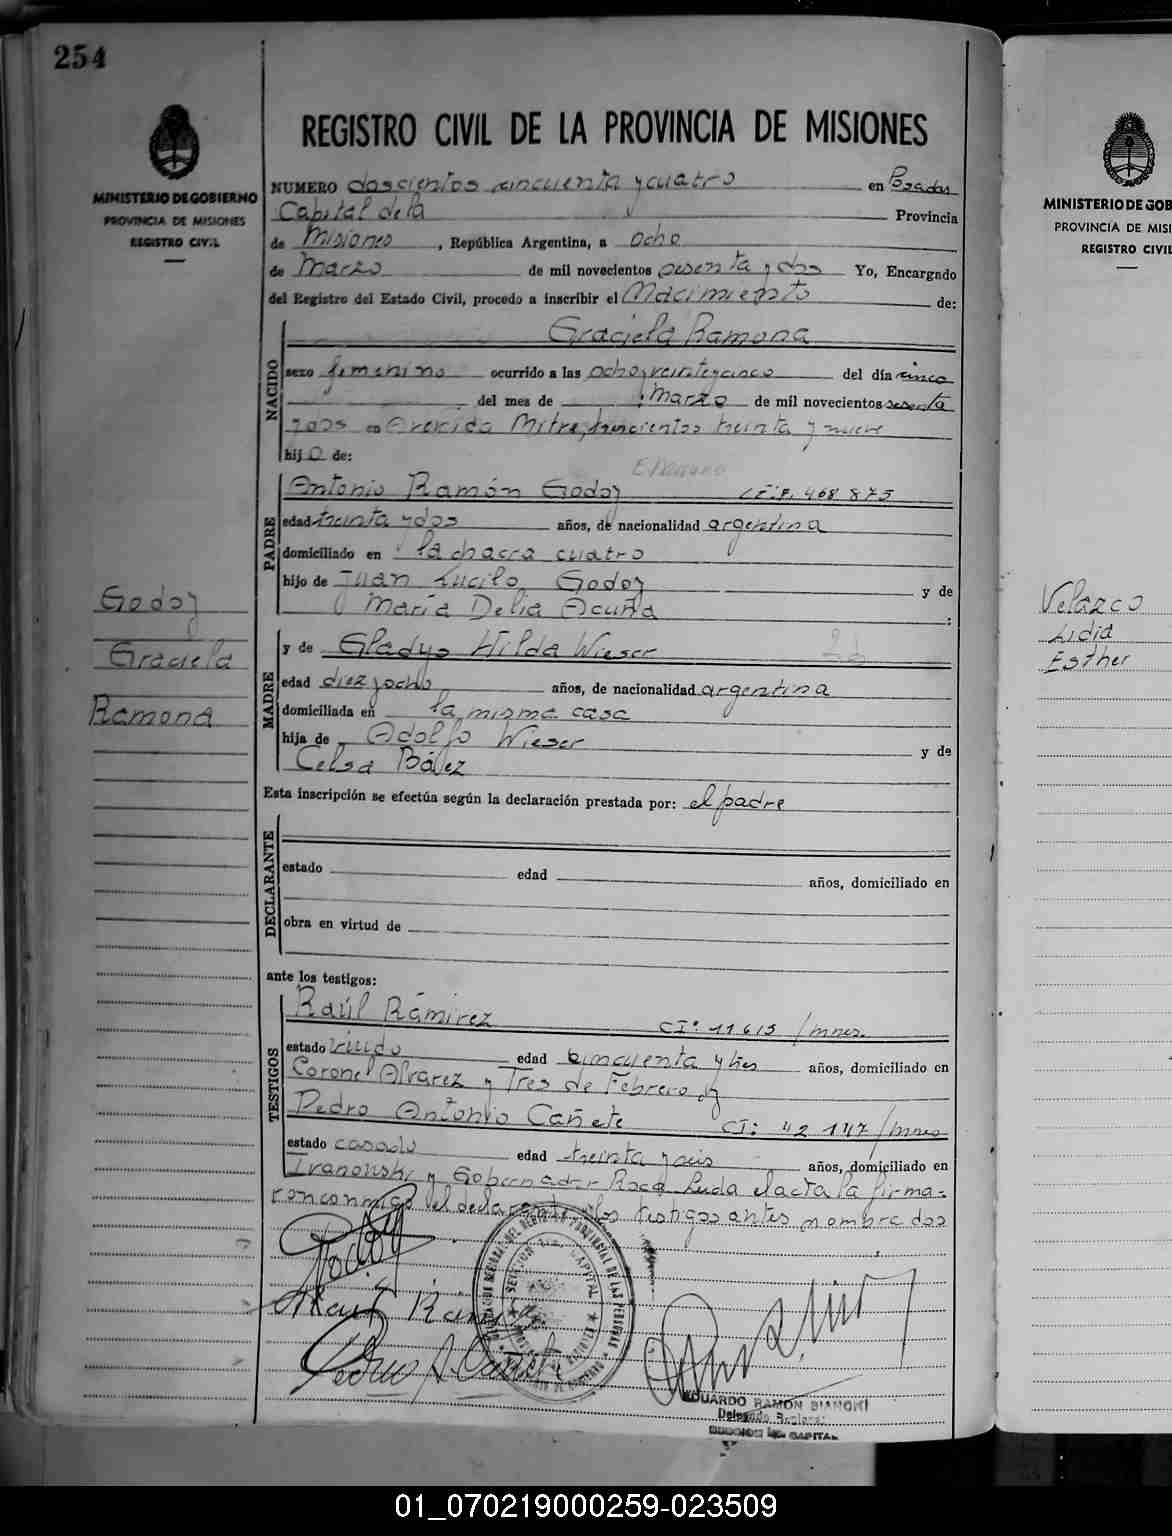 254
MINISTERIO DE GOBIERNO
PROVINCIA DE MISIONES
REGISTRO CIVIL
REGISTRO CIVIL DE LA PROVINCIA DE MISIONES
NUMERO doscientos cincuenta y cuatro en Posadas
Capital de la Provincia
de Misiones, República Argentina, a ocho
de Marzo de mil novecientos sesenta y dos Yo, Encargado
del Registro del Estado Civil, procedo a inscribir el Nacimiento de:
NACIDO
Graciela Ramona
sexo femenino ocurrido a las ocho y veinteycinco del día cinco
del mes de Marzo de mil novecientos sesenta
y dos en Avenida Mitre, trescientos treinta y nueve
hij a de:
PADRE
Antonio Ramón Godoy 468.875
edad treinta y dos años, de nacionalidad argentina
domiciliado en la chacra cuatro
hijo de Juan Lucilo Godoy y de
María Delia Acuña
MADRE
y de Gladys Hilda Wieser
edad diez y ocho años, de nacionalidad argentina
domiciliada en la misma casa
hija de Adolfo Wieser y de
Celsa Báez
Esta inscripción se efectúa según la declaración prestada por: el padre
DECLARANTE
estado edad años, domiciliado en
obra en virtud de
ante los testigos:
TESTIGOS
Raúl Ramírez CI: 11613/mnes.
estado viudo edad cincuenta y tres años, domiciliado en
Coronel Alvarez y Tres de Febrero y
Pedro Antonio Cañete CI: 42147/mnes
estado casado edad treinta y seis años, domiciliado en
Ivanowski y Gobernador Roca Leida el acta la firma-
ron conmigo el declarante y los testigos antes nombrados
Godoy
Graciela
Ramona
EDUARDO RAMON BIANCHI
Delegado
SECCION CAPITAL
MINISTERIO DE GOB
PROVINCIA DE MISI
REGISTRO CIVIL
Velazco
Lidia
Esther
01_070219000259-023509